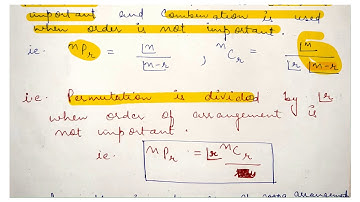 important and Combination is used
when order is not important.
ie. ⁿPᵣ = ∟n / ∟n-r , ⁿCᵣ = ∟n / ∟r ∟n-r
i.e. Permutation is divided by ∟r
when order of arrangement is
not important.
ie. ⁿPᵣ = ∟r ⁿCᵣ